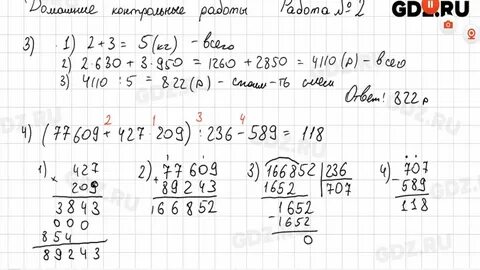 Домашние контрольные работы Работа № 2
GDZ.RU
3) 1) 2+3 = 5(кг) - всего
2) 2·630 + 3·950 = 1260 + 2850 = 4110(р) - всего
3) 4110 : 5 = 822(р) - стоим-ть смеси
Ответ: 822 р
2 1 3 4
4) (77609 + 427·209) : 236 - 589 = 118
1) 427
× 209
3843
000
854
89243
2) 77609
+ 89243
166852
3) 166852 | 236
1652 707
1652
- 1652
0
4) 707
- 589
118
GDZ.RU